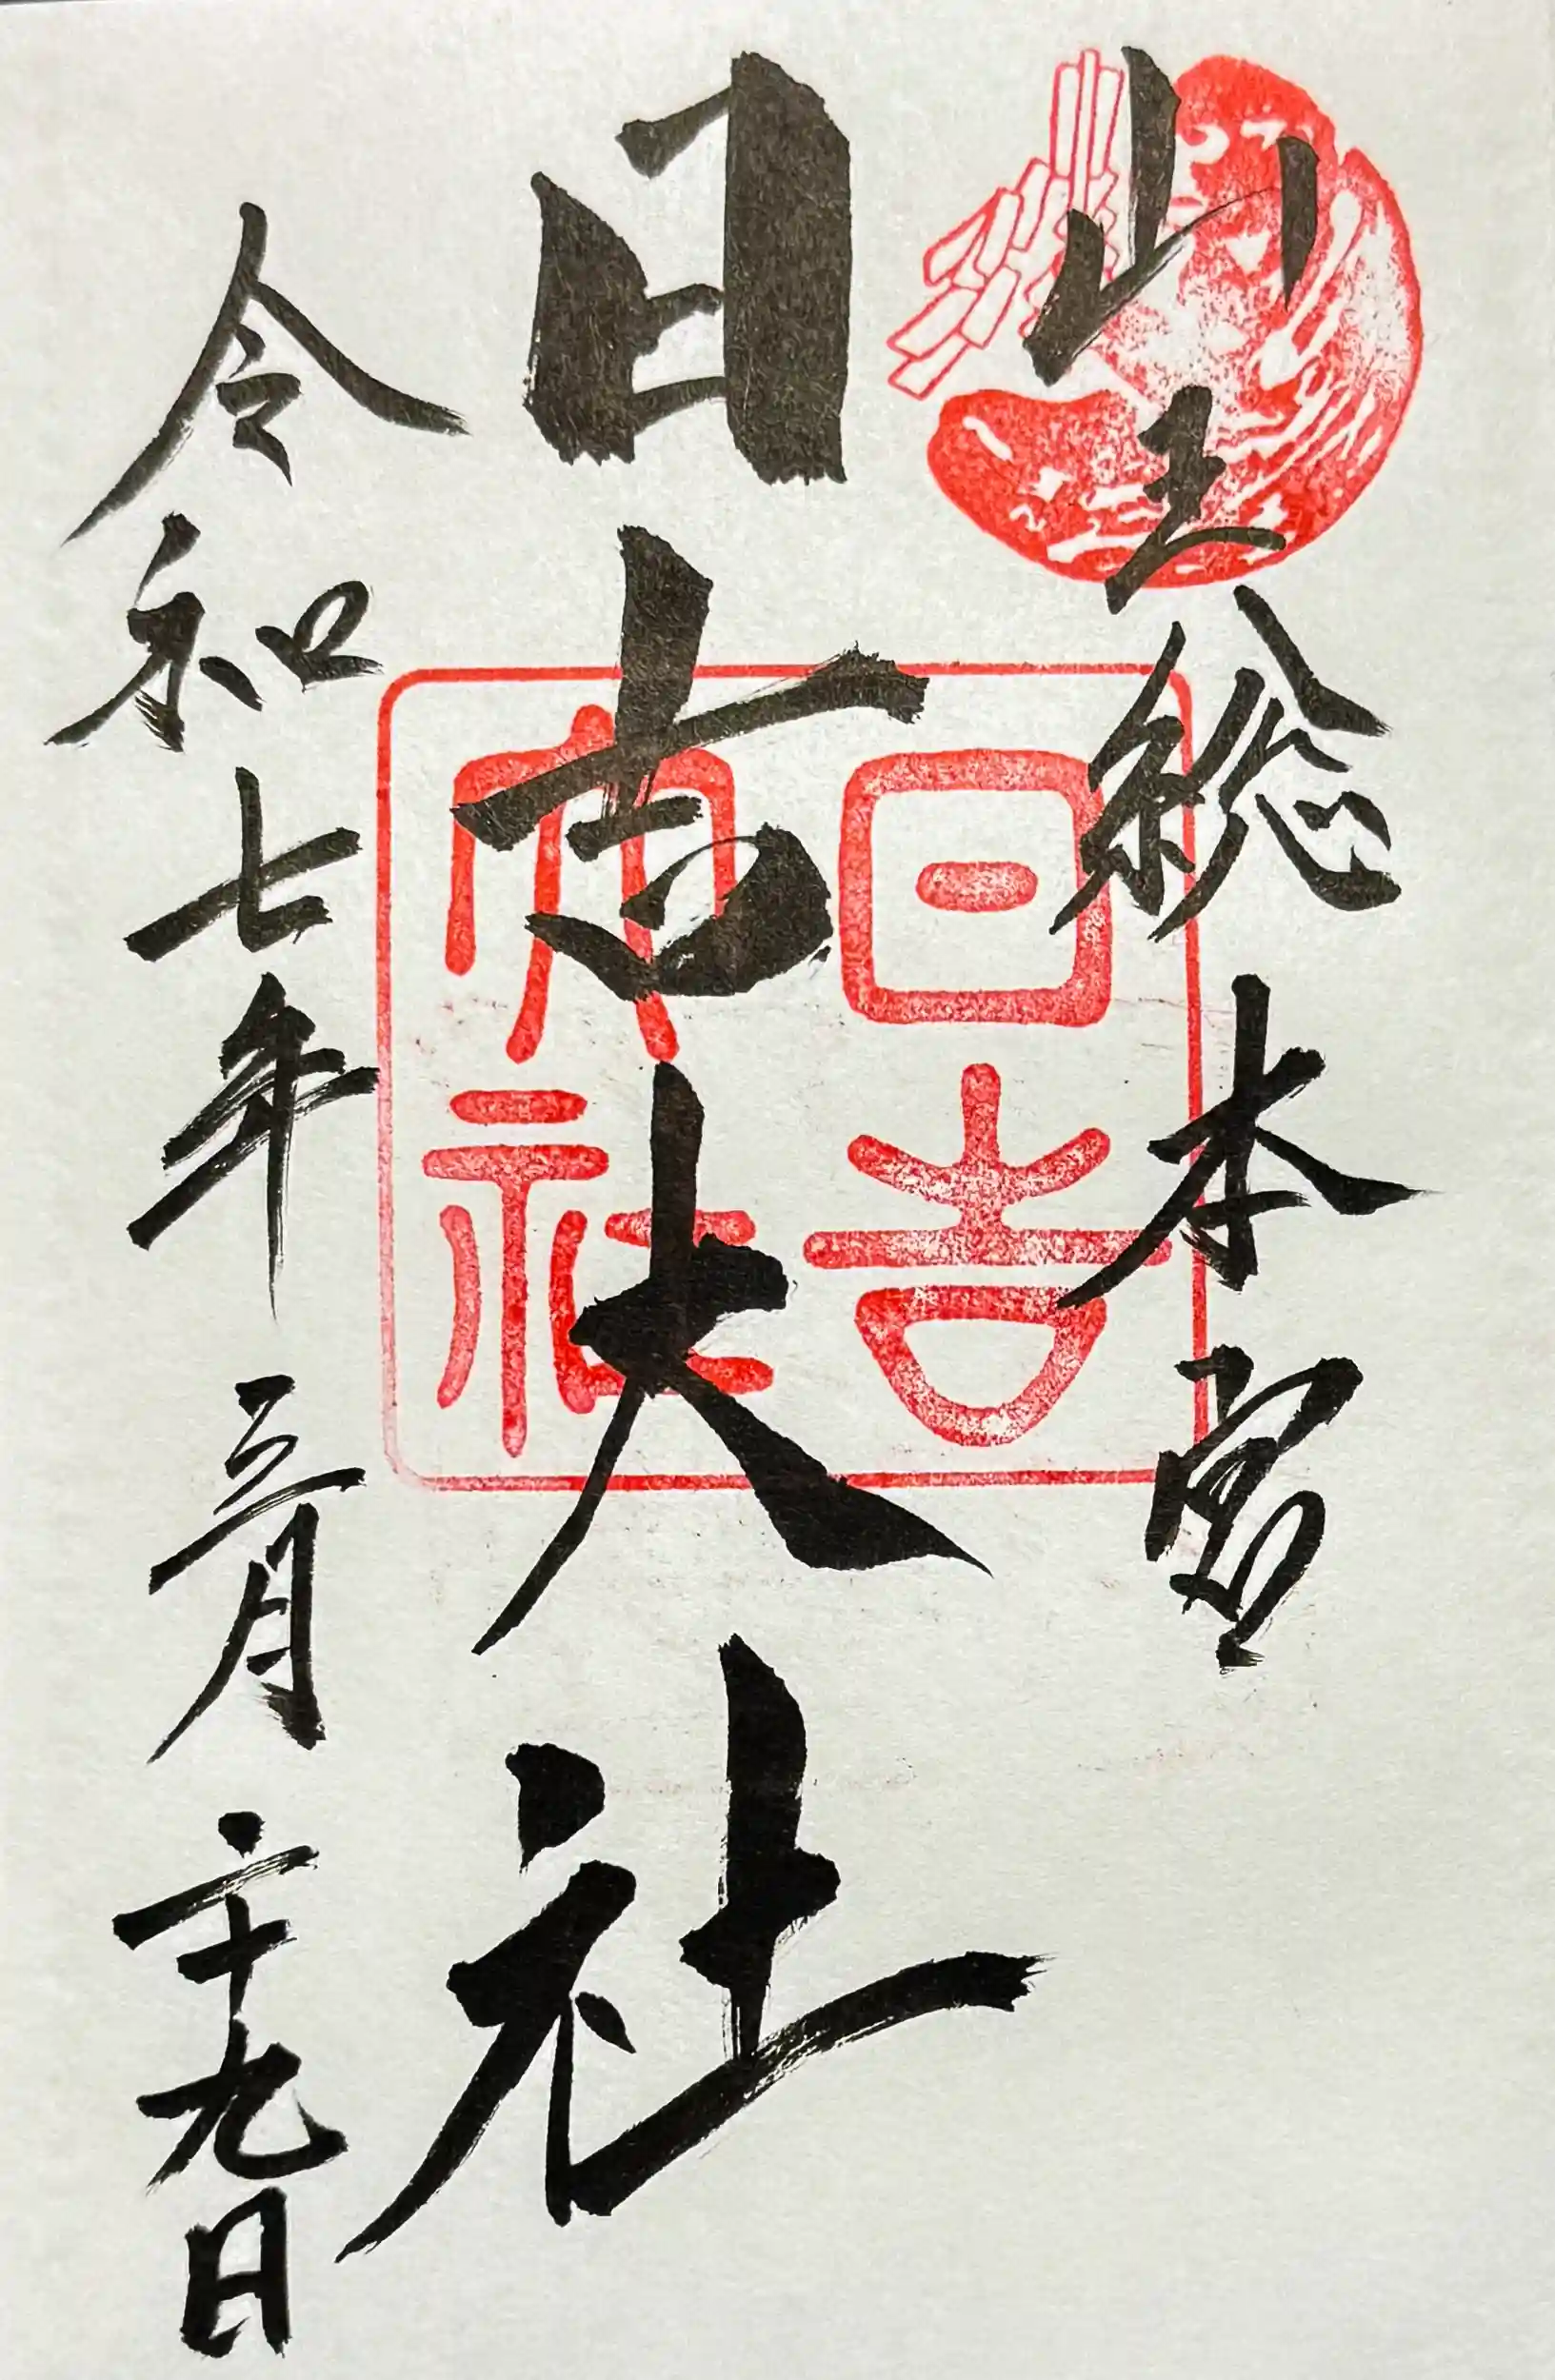 山王総本宮
日吉大社
日吉大社
令和七年三月十九日